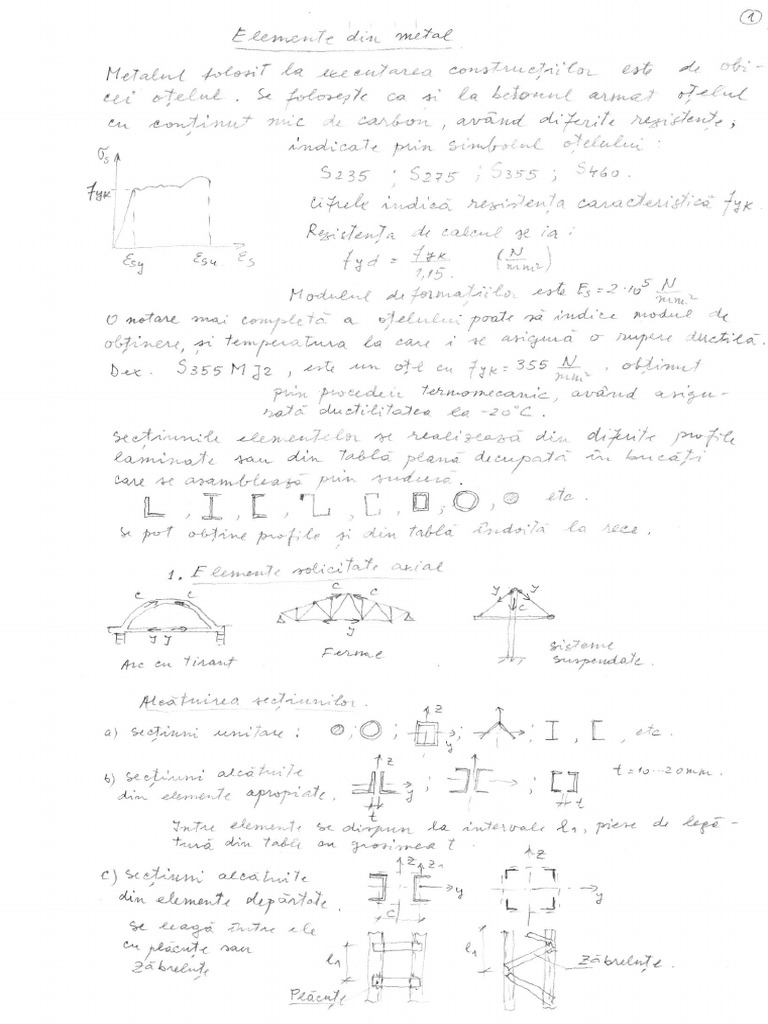 1
Elemente din metal
Metalul folosit la executarea construcțiilor este de obi-
cei oțelul. Se folosește ca si la betonul armat oțelul
cu conținut mic de carbon, având diferite rezistențe,
indicate prin simbolul oțelului :
σs
fyk
εsy
εsu
εs
S235 ; S275 ; S355 ; S460.
Cifrele indică rezistența caracteristică fyk.
Rezistența de calcul se ia :
fyd = fyk / 1,15. (N/mm²)
Modulul deformațiilor este Es = 2·10⁵ N/mm²
O notare mai completă a oțelului poate să indice modul de
obținere, și temperatura la care i se asigură o rupere ductilă.
Dex. S355 M J2, este un oțl cu fyk = 355 N/mm², obținut
prin procedeu termomecanic, având asigu-
rată ductilitatea la -20°C.
Secțiunile elementelor se realizează din diferite profile
laminate sau din tablă plană decupată în bucăți
care se asamblează prin sudură.
etc.
Se pot obține profile și din tablă îndoită la rece.
1. Elemente solicitate axial
C C
y y
Arc cu tirant
C C
y
Ferme
y y
C
Sisteme
suspendate.
Alcătuirea secțiunilor.
a) Secțiuni unitare : ; ; z y ; ; , , etc.
b) Secțiuni alcătuite
din elemente apropiate.
z
y
t
; ;
t
t = 10...20mm.
Între elemente se dispun la intervale l1, piese de legă-
tură din table cu grosimea t.
c) Secțiuni alcătuite
din elemente depărtate.
z z1
y
c
z
y
Se leagă între ele
cu plăcuțe sau
zăbreluțe
l1
Plăcuțe
l1
Zăbreluțe.